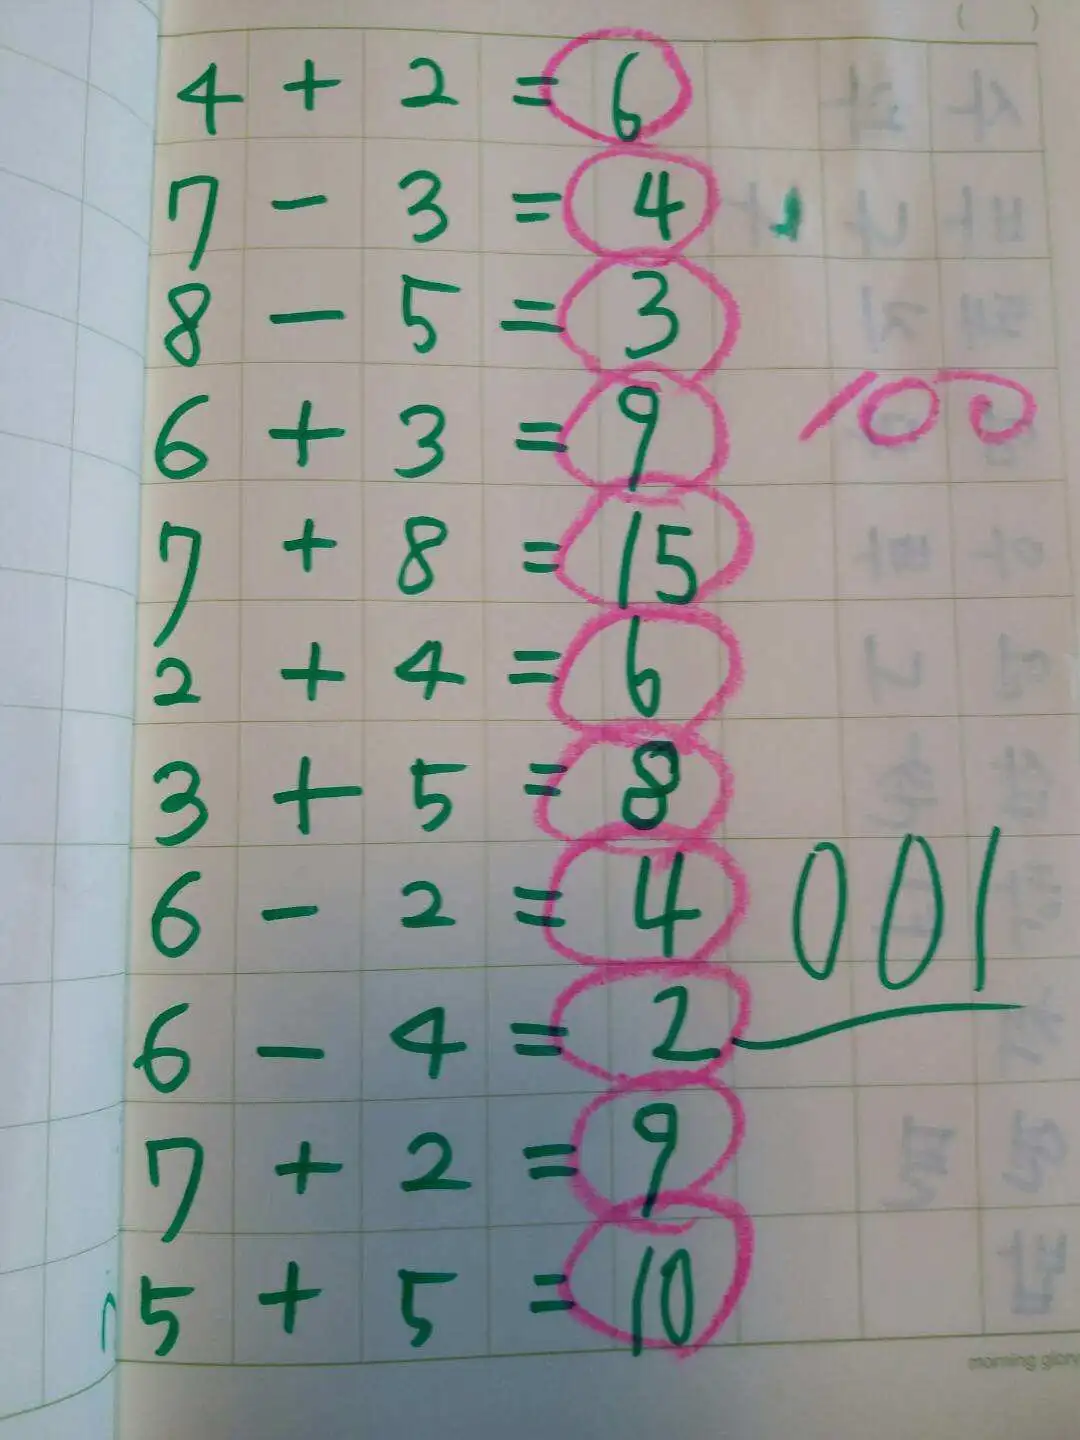 4 + 2 = 6
7 - 3 = 4
8 - 5 = 3
6 + 3 = 9
100
7 + 8 = 15
2 + 4 = 6
3 + 5 = 8
6 - 2 = 4
001
6 - 4 = 2
7 + 2 = 9
5 + 5 = 10
morning glory